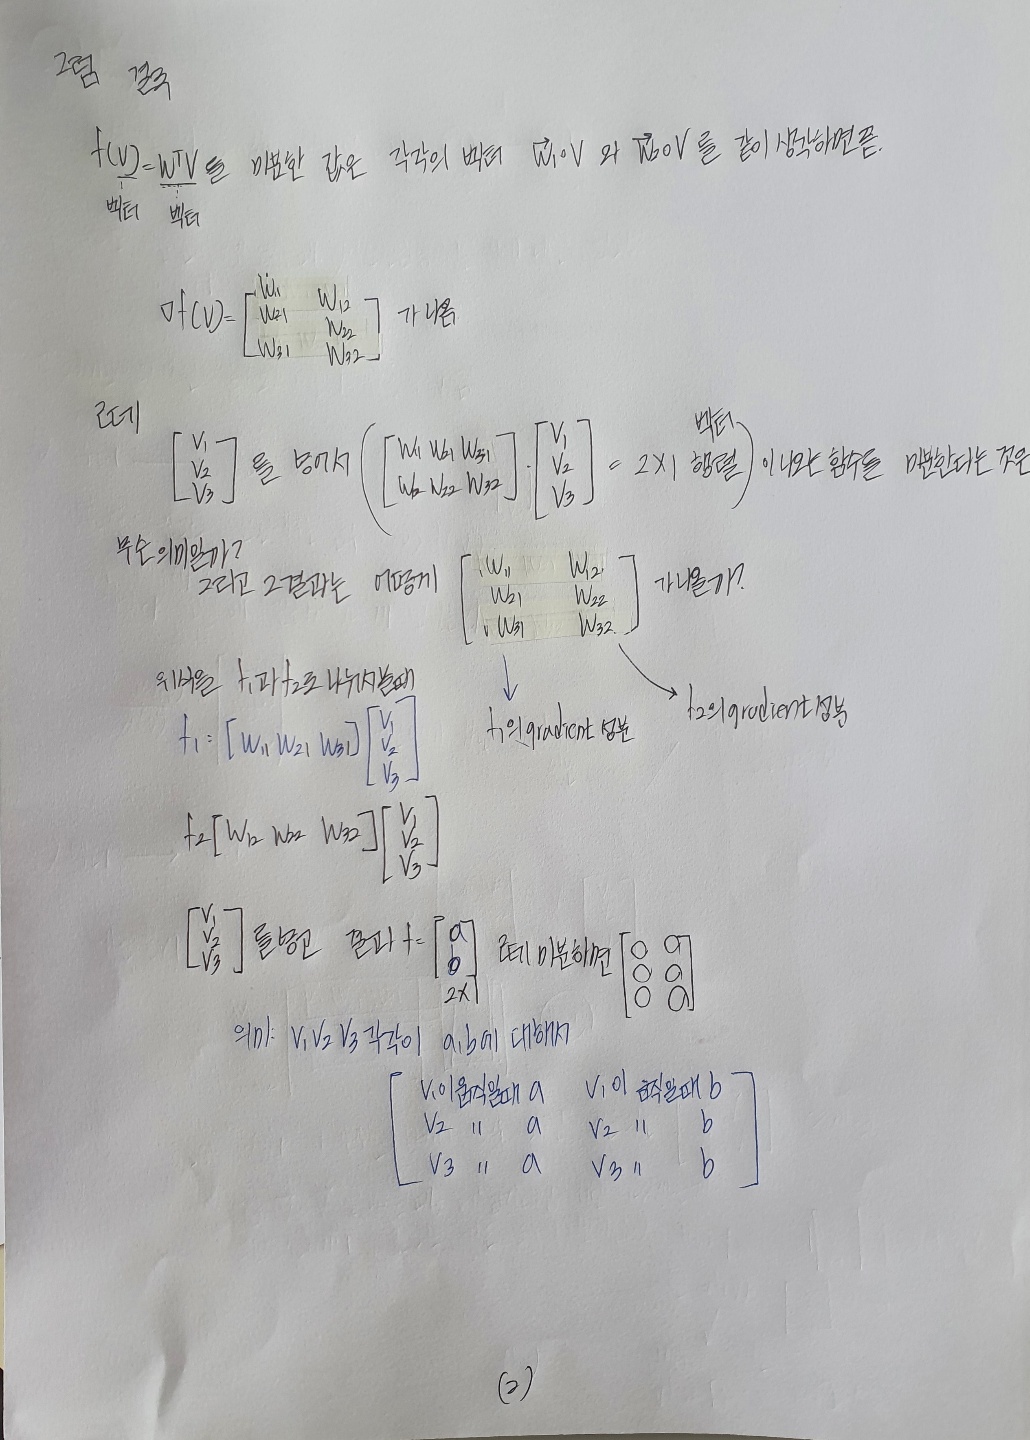 그럼 결국
f(v)=WᵀV를 미분한 값은 각각의 벡터 w⃗₁∘V 와 w⃗₂∘V 를 같이 생각하면 끝.
벡터 벡터
∇f(v)= [ W₁₁ W₁₂
W₂₁ W₂₂
W₃₁ W₃₂ ] 가 나옴
근데
[ V₁ V₂ V₃ ] 를 넣어서 ( [ W₁₁ W₂₁ W₃₁
W₁₂ W₂₂ W₃₂ ] · [ V₁ V₂ V₃ ] = 2X1 벡터 행렬 ) 이 나오는 함수를 미분한다는 것은
무슨 의미일까?
그리고 그 결과는 어떻게 [ W₁₁ W₁₂
W₂₁ W₂₂
W₃₁ W₃₂ ] 가 나올까?
위 식을 f₁과 f₂로 나눠서 볼때
f₁의 gradient 성분 f₂의 gradient 성분
f₁= [W₁₁ W₂₁ W₃₁] [ V₁ V₂ V₃ ]
f₂[W₁₂ W₂₂ W₃₂] [ V₁ V₂ V₃ ]
[ V₁ V₂ V₃ ] 를 넣고 결과 f= [ a b ] 2X1 근데 미분하면 [
0 a
0 a
0 a ]
의미: V₁ V₂ V₃ 각각이 a,b에 대해서
[ V₁이 움직일때 a V₁이 움직일때 b
V₂ 〃 a V₂ 〃 b
V₃ 〃 a V₃ 〃 b ]
(2)